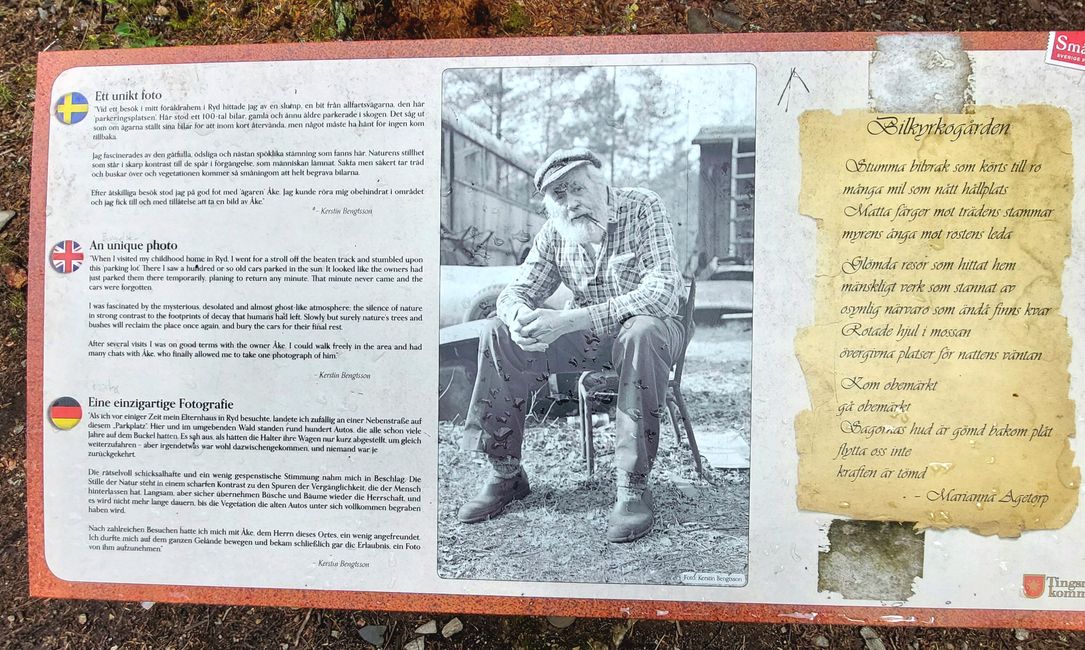 Ett unikt foto
"Vid ett besök i mitt föräldrahem i Ryd hittade jag av en slump, en bit från allfartsvägarna, den här
'parkeringsplatsen'. Här stod ett 100-tal bilar, gamla och ännu äldre parkerade i skogen. Det såg ut
som om ägarna ställt sina bilar för att inom kort återvända, men något måste ha hänt för ingen kom
tillbaka.
Jag fascinerades av den gåtfulla, ödsliga och nästan spöklika stämning som fanns här. Naturens stillhet
som står i skarp kontrast till de spår i förgängelse, som människan lämnat. Sakta men säkert tar träd
och buskar över och vegetationen kommer så småningom att helt begrava bilarna.
Efter åtskilliga besök stod jag på god fot med 'ägaren' Åke. Jag kunde röra mig obehindrat i området
och jag fick till och med tillåtelse att ta en bild av Åke."
- Kerstin Bengtsson
An unique photo
"When I visited my childhood home in Ryd, I went for a stroll off the beaten track and stumbled upon
this 'parking lot'. There I saw a hundred or so old cars parked in the sun. It looked like the owners had
just parked them there temporarily, planing to return any minute. That minute never came and the
cars were forgotten.
I was fascinated by the mysterious, desolated and almost ghost-like atmosphere; the silence of nature
in strong contrast to the footprints of decay that humans had left. Slowly but surely nature's trees and
bushes will reclaim the place once again, and bury the cars for their final rest.
After several visits I was on good terms with the owner Åke. I could walk freely in the area and had
many chats with Åke, who finally allowed me to take one photograph of him."
- Kerstin Bengtsson
Eine einzigartige Fotografie
"Als ich vor einiger Zeit mein Elternhaus in Ryd besuchte, landete ich zufällig an einer Nebenstraße auf
diesem „Parkplatz". Hier und im umgebenden Wald standen rund hundert Autos, die alle schon viele
Jahre auf dem Buckel hatten. Es sah aus, als hätten die Halter ihre Wagen nur kurz abgestellt, um gleich
weiterzufahren – aber irgendetwas war wohl dazwischengekommen, und niemand war je
zurückgekehrt.
Die rätselvoll schicksalhafte und ein wenig gespenstische Stimmung nahm mich in Beschlag. Die
Stille der Natur steht in einem scharfen Kontrast zu den Spuren der Vergänglichkeit, die der Mensch
hinterlassen hat. Langsam, aber sicher übernehmen Büsche und Bäume wieder die Herrschaft, und
es wird nicht mehr lange dauern, bis die Vegetation die alten Autos unter sich vollkommen begraben
haben wird.
Nach zahlreichen Besuchen hatte ich mich mit Åke, dem Herrn dieses Ortes, ein wenig angefreundet.
Ich durfte mich auf dem ganzen Gelände bewegen und bekam schließlich gar die Erlaubnis, ein Foto
von ihm aufzunehmen."
- Kerstin Bengtsson
Foto: Kerstin Bengtsson
Bilkyrkogården
Stumma bilvrak som körts till ro
många mil som nått hållplats
Matta färger mot trädens stammar
myrens ånga mot rostens leda
Glömda resor som hittat hem
mänskligt verk som stannat av
osynlig närvaro som ändå finns kvar
Rotade hjul i mossan
övergivna platser för nattens väntan
Kom obemärkt
gå obemärkt
Sagornas hud är gömd bakom plåt
flytta oss inte
kraften är tömd
- Marianna Agetorp
Små
SVERIGE
Tingsr
komm